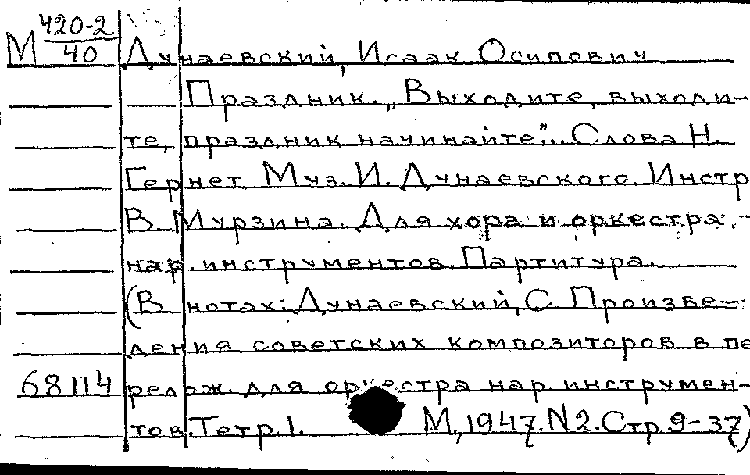 М 420-2/40 Дунаевский, Исаак Осипович
Праздник. „Выходите, выходи-
те, праздник начинайте". Слова Н.
Гернет. Муз. И. Дунаевского. Инстр
В. Мурзина. Для хора и оркестра
нар. инструментов. Партитура.
(В нотах: Дунаевский, С. Произве-
дения советских композиторов в пе
68114 релож. для оркестра нар. инструмен-
тов. Тетр. 1. М, 1947. N2. Стр. 9-37)